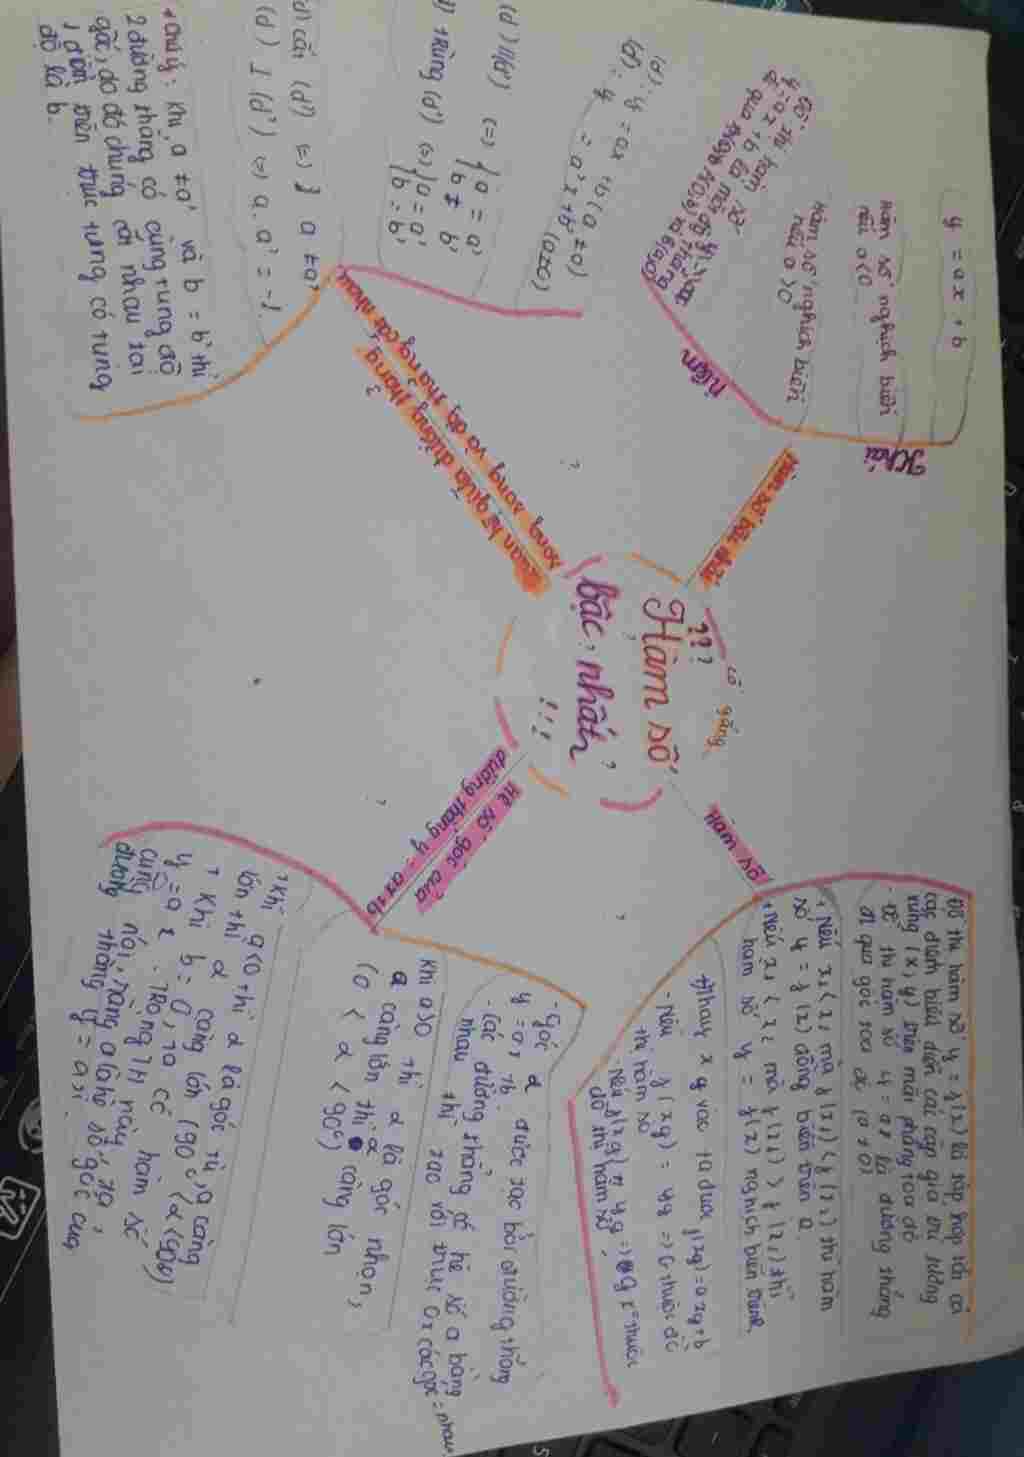 Hàm số
bậc nhất
???
!!!
cố gắng
Hàm số bậc nhất
Khái
niệm
y = ax + b
Hàm số nghịch biến
nếu a<0
Hàm số nghịch biến
nếu a>0
(d): y = ax + b (a ≠ 0)
(d'): y = a'x + b' (a≠0)
(d) // (d') <=> { a = a'
b ≠ b'
trùng (d') <=> { a = a'
b = b'
cắt (d') <=> } a ≠ a'
(d) ⊥ (d') <=> a.a' = -1
+ Chú ý: Khi a ≠ a' và b = b' thì
2 đường thẳng có cùng tung độ
gốc, do đó chúng cắt nhau tại
1 điểm trên trục tung có tung
độ là b.
Quan hệ giữa 2 đường thẳng
song song và đg thẳng cắt nhau
Đồ thị hàm số y = f(x) là tập hợp tất cả
các điểm biểu diễn các cặp giá trị tương
ứng (x; y) trên mặt phẳng toạ độ
- Đồ thị hàm số y = ax là đường thẳng
đi qua gốc toạ độ (0;0)
+ Nếu x₁ < x₂ mà f(x₁) < f(x₂) thì hàm
số y = f(x) đồng biến trên
+ Nếu x₁ < x₂ mà f(x₁) > f(x₂) thì
hàm số y = f(x) nghịch biến trên
thay xg vào ta được f(xg) = axg + b
- Nếu f(xg) = yg => G thuộc đt
thị hàm số
- Nếu f(xg) ≠ yg => G k° thuộc
đồ thị hàm số
Hệ số góc của
đường thẳng y = ax+b
- Góc α được tạo bởi đường thẳng
y = ax + b
- Các đường thẳng có hệ số a bằng
nhau thì tạo với trục Ox các góc = nhau
Khi a>0 thì α là góc nhọn,
a càng lớn thì α càng lớn
(0 < α < 90°)
+ Khi a<0 thì α là góc tù, a càng
lớn thì α càng lớn (90° < α < 180°)
+ Khi b = 0, ta có hàm số
y = ax. Trong TH này, ta
cũng nói rằng a là hệ số góc của
đường thẳng y = ax